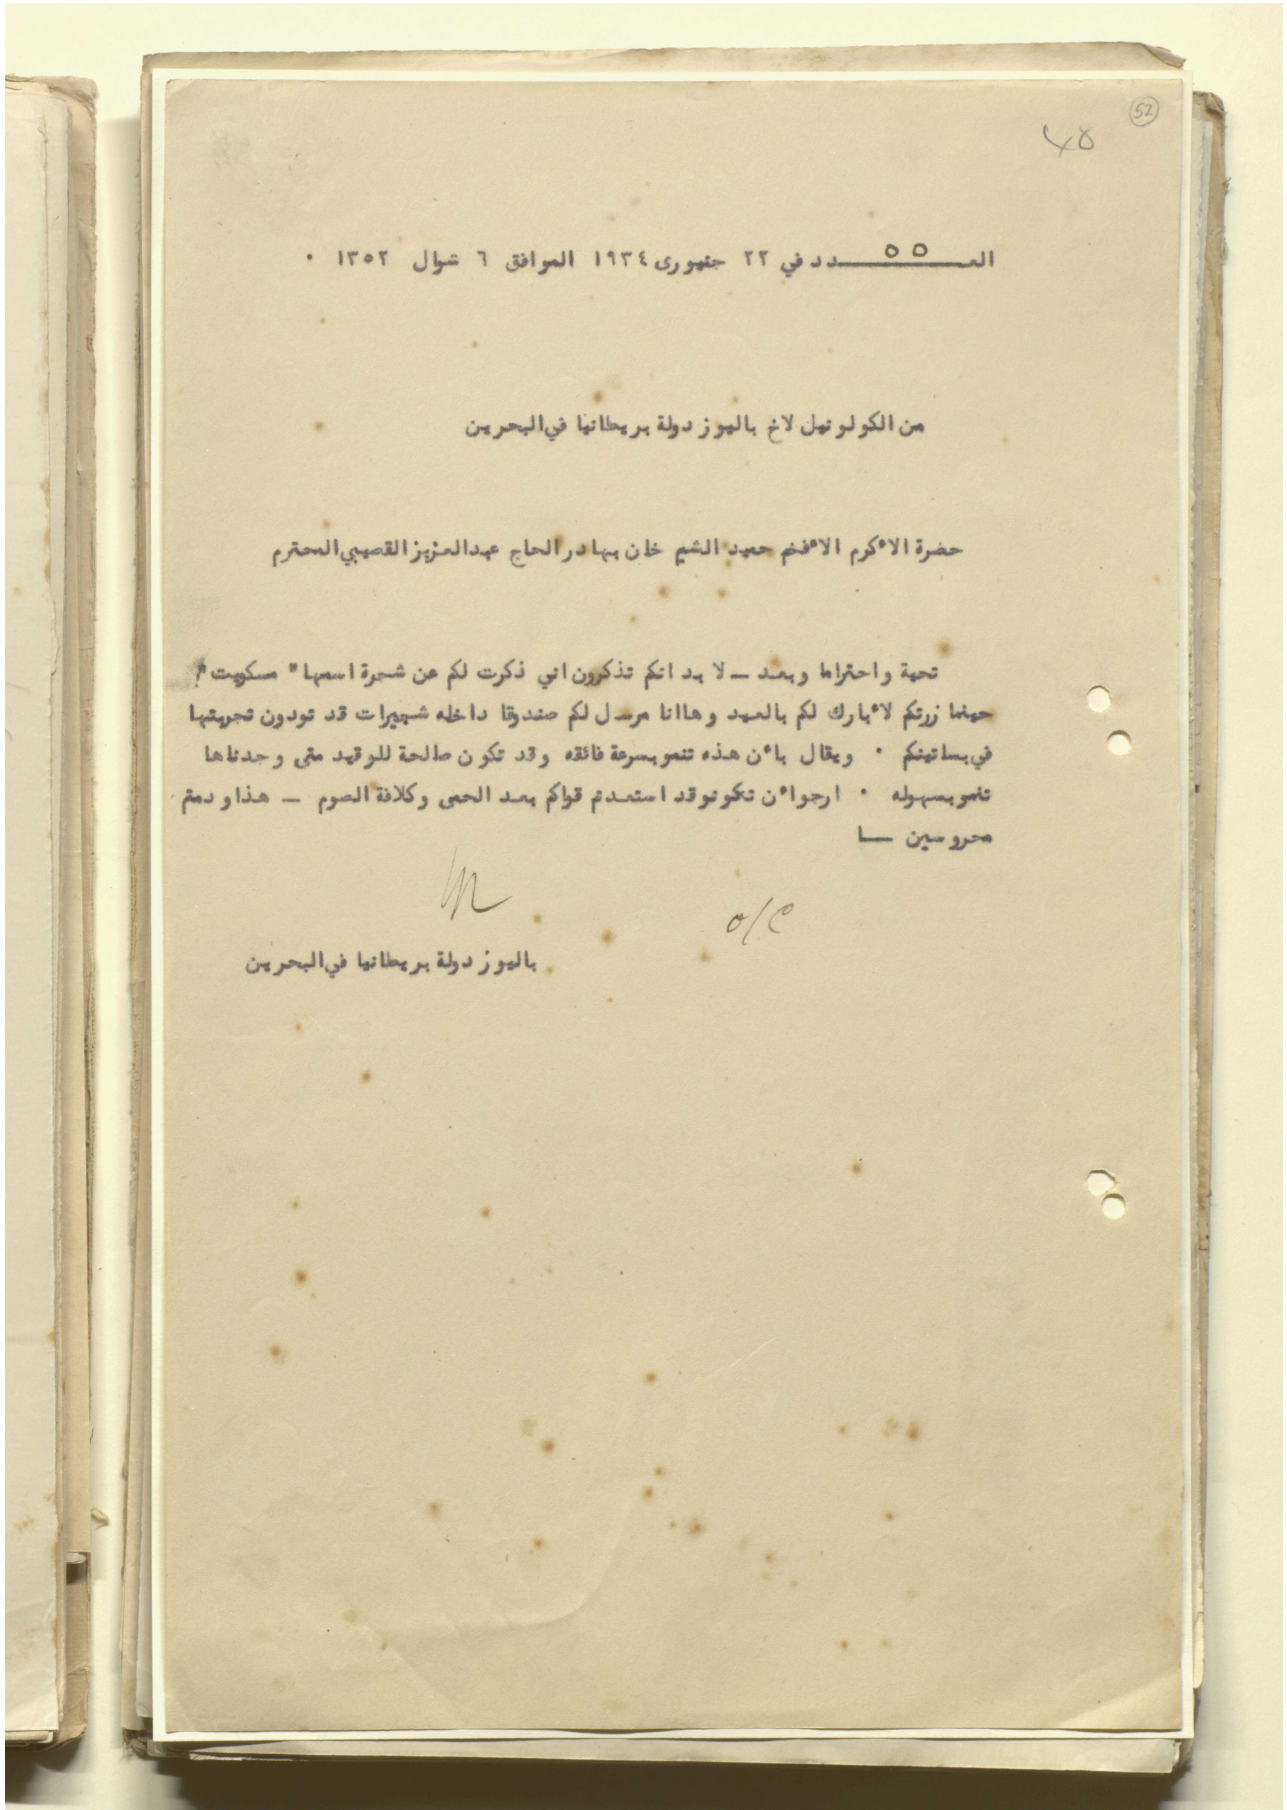 52
٤٥
العـ ٥٥ ـدد في ٢٢ جنيورى ١٩٣٤ الموافق ٦ شوال ١٣٥٢ ٠
من الكولونيل لاخ باليوز دولة بريطانيا في البحرين
حضرة الاٴكرم الاٴفخم حميد الشيم خان بهادر الحاج عبدالعزيز القصيبي المحترم
تحية واحتراما وبعد ــ لا بد انكم تذكرون اني ذكرت لكم عن شجرة اسمها " مسكويت "
حينما زرتكم لاٴبارك لكم بالعيد وهاانا مرسل لكم صندوقا داخله شجيرات قد تودون تجربتها
في بساتينكم ٠ ويقال باٴن هذه تنمو بسرعة فائقه وقد تكون صالحة للوقيد متى وجدناها
تنمو بسهوله ٠ ارجواٴن تكونوقد استعدتم قواكم بعد الحمى وكلافة الصوم ــ هذا و دمتم
محروسين ــا
o/c
باليوز دولة بريطانيا في البحرين